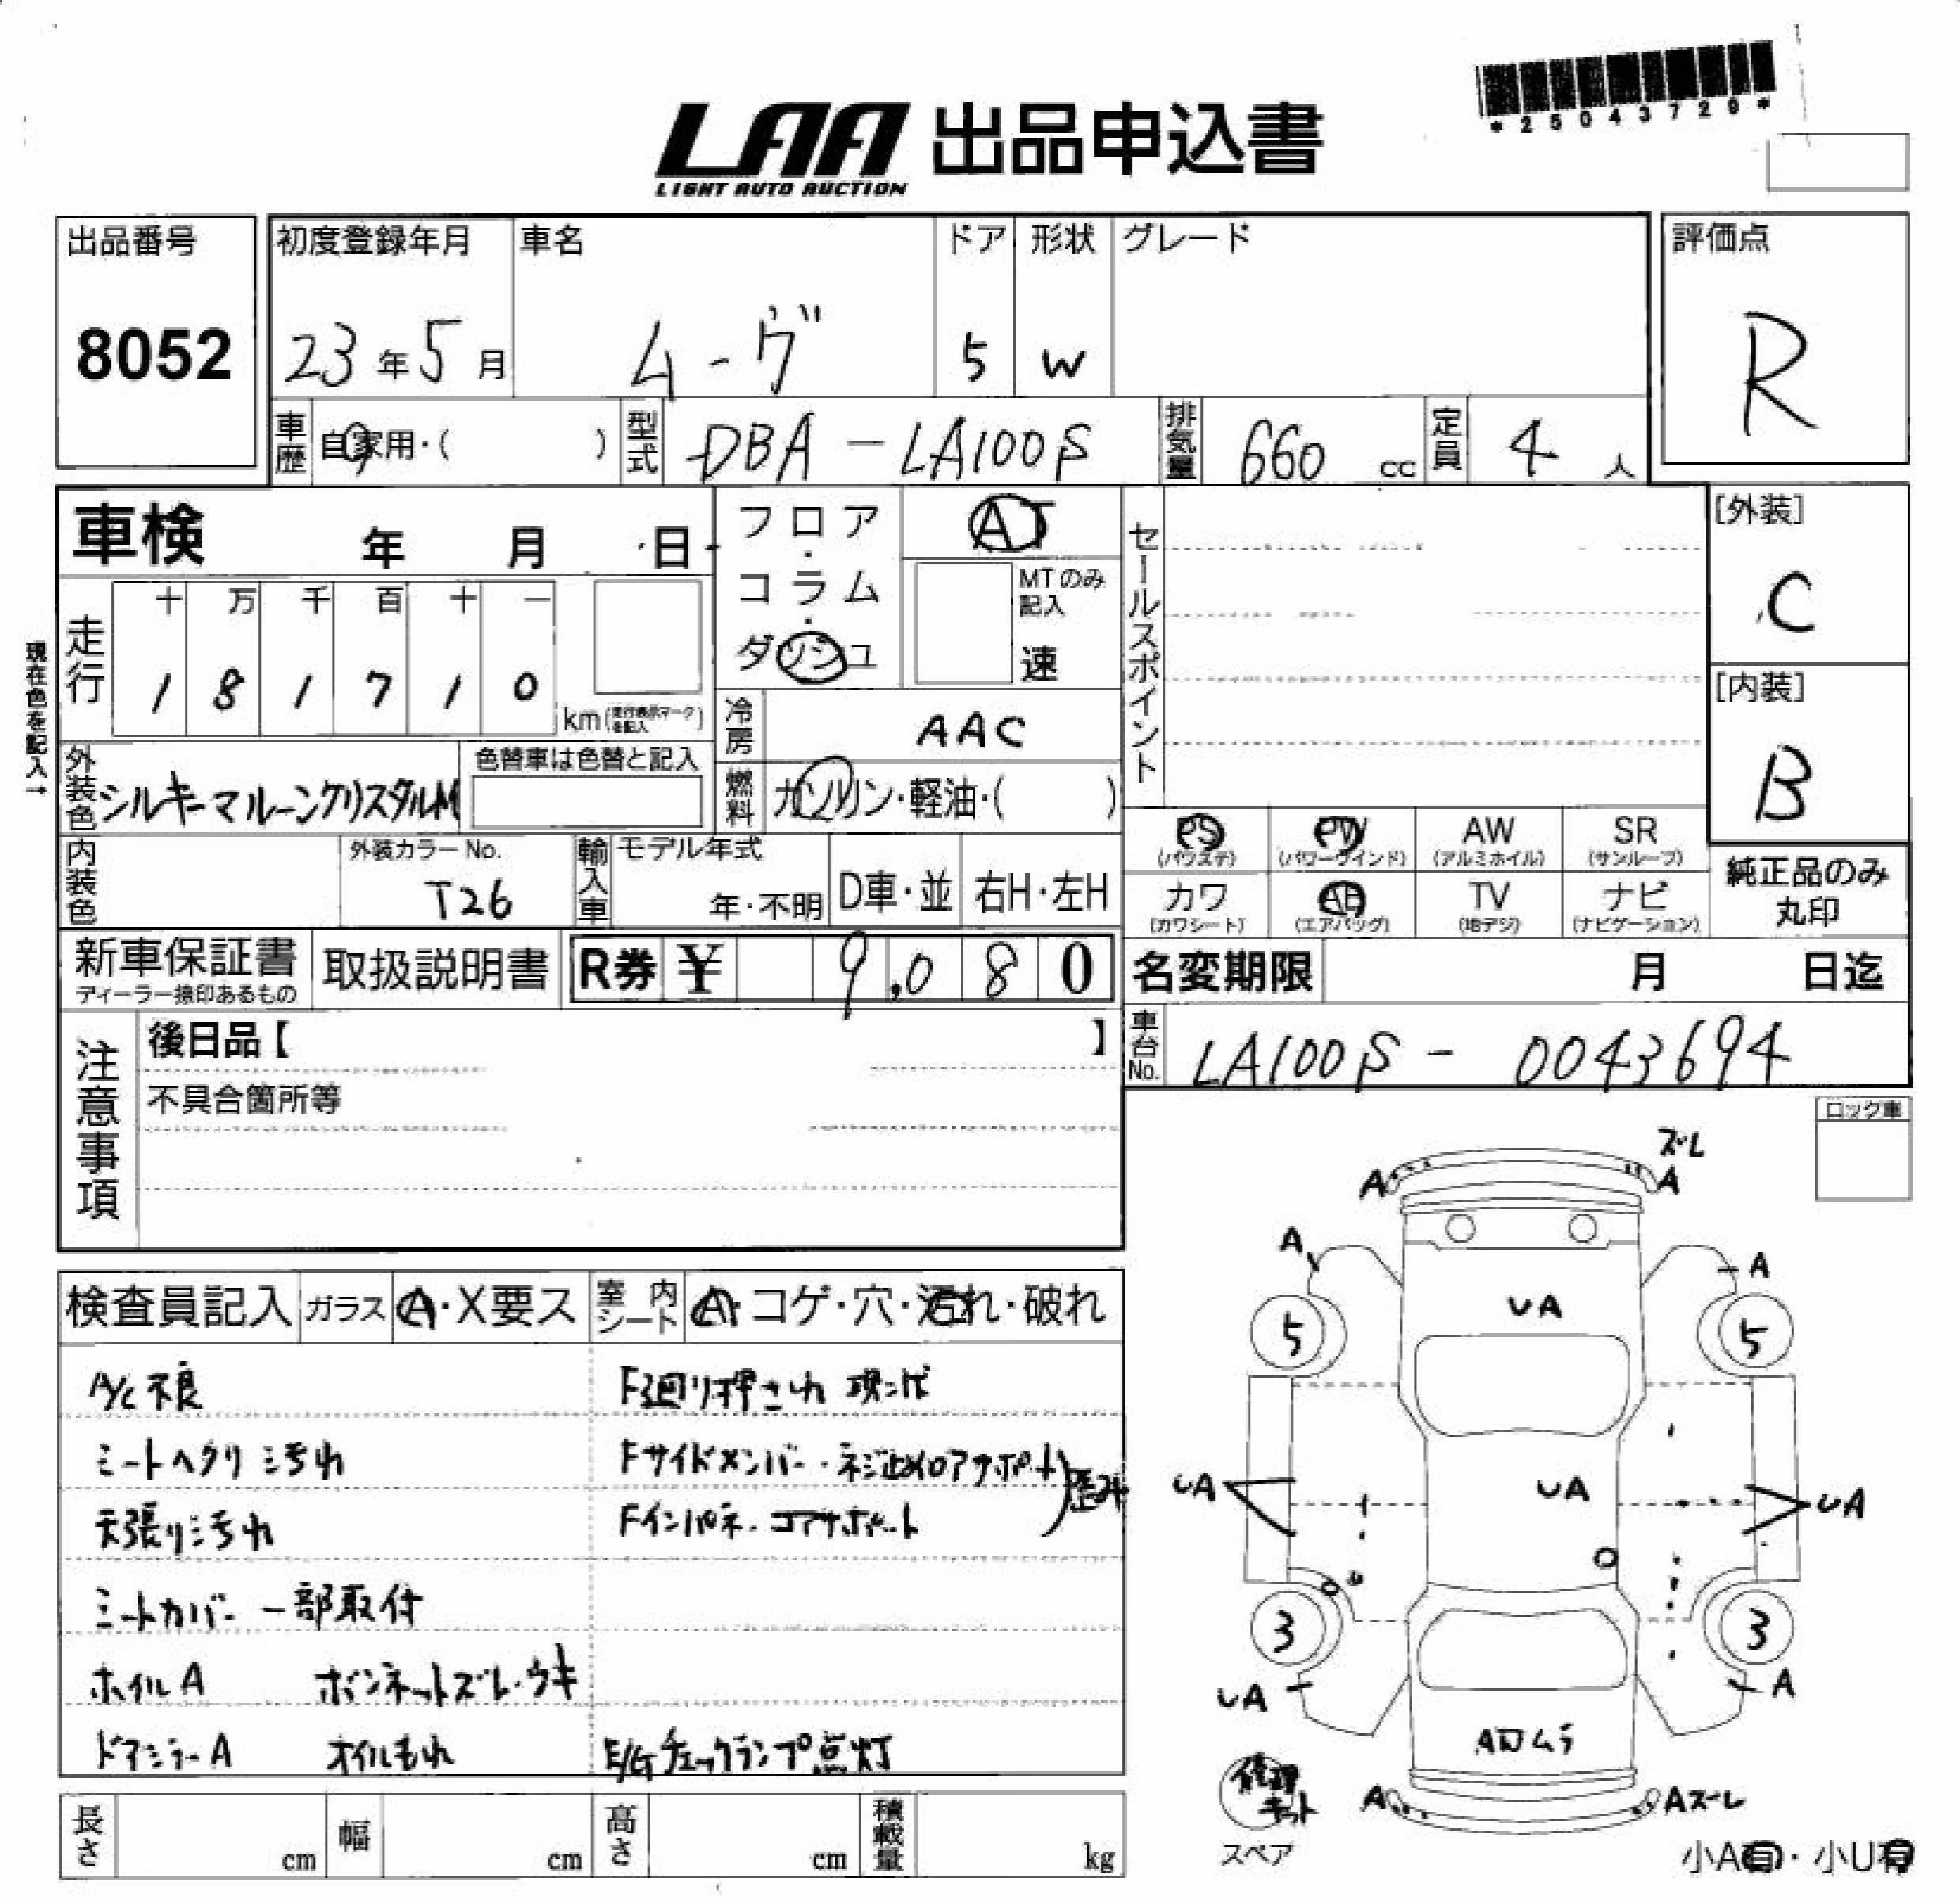 *25043720*
LAA 出品申込書
LIGHT AUTO AUCTION
出品番号 初度登録年月 車名 ドア 形状 グレード 評価点
8052 23年5月 ムーヴ 5 W R
車歴 自家用・( ) 型式 DBA-LA100S 排気量 660 cc 定員 4 人
車検 年 月 日 フロア・コラム・ダッシュ AT セールスポイント [外装]
C
MTのみ記入 速
現在色を記入→
走行 十 万 千 百 十 一
1 8 1 7 1 0 km (走行表示マークを記入)
[内装]
B
冷房 AAC
外装色 シルキーマルーンクリスタルM 色替車は色替と記入 燃料 ガソリン・軽油・( )
PS (パワステ) PW (パワーウインド) AW (アルミホイル) SR (サンルーフ)
内装色 外装カラーNo. T26 輸入車 モデル年式 年・不明 D車・並 右H・左H
カワ (カワシート) AB (エアバッグ) TV (地デジ) ナビ (ナビゲーション)
純正品のみ丸印
新車保証書 ディーラー捺印あるもの 取扱説明書 R券 ¥ 9,080 名変期限 月 日迄
車台No. LA100S-0043694
注意事項 後日品【 】
不具合箇所等
ロック車
検査員記入 ガラス A・X要ス 室内シート A・コゲ・穴・汚れ・破れ
A/C不良 F廻り押され 現状
シートヘタリ 汚れ Fサイドメンバー・ネジ止めコアサポート
天張り汚れ Fインパネ・コアサポート 歪み
シートカバー 一部取付
ホイルA ボンネットズレ・ウキ
ドアミラーA オイルもれ E/Gチェックランプ点灯
長さ cm 幅 cm 高さ cm 積載量 kg
ズレ
A A
A A
UA
5 5
UA UA UA
3 3
UA A
Aワレムラ
修理キット
A Aズレ
スペア
小A有・小U有